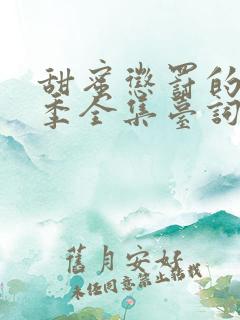 甜蜜懲罰的
季全集臺詞
舊月安好
未经同意禁止转载